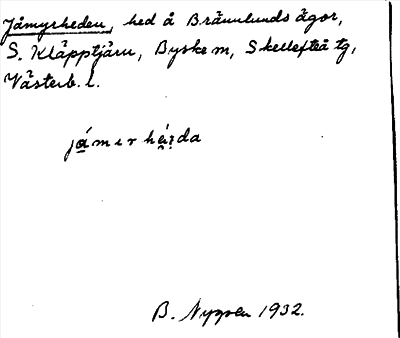 Jåmyrheden, hed å Brännlunds ägor,
S. Kläpptjärn, Byske m, Skellefteå tg,
Västerb. l.
B. Nygren 1932.